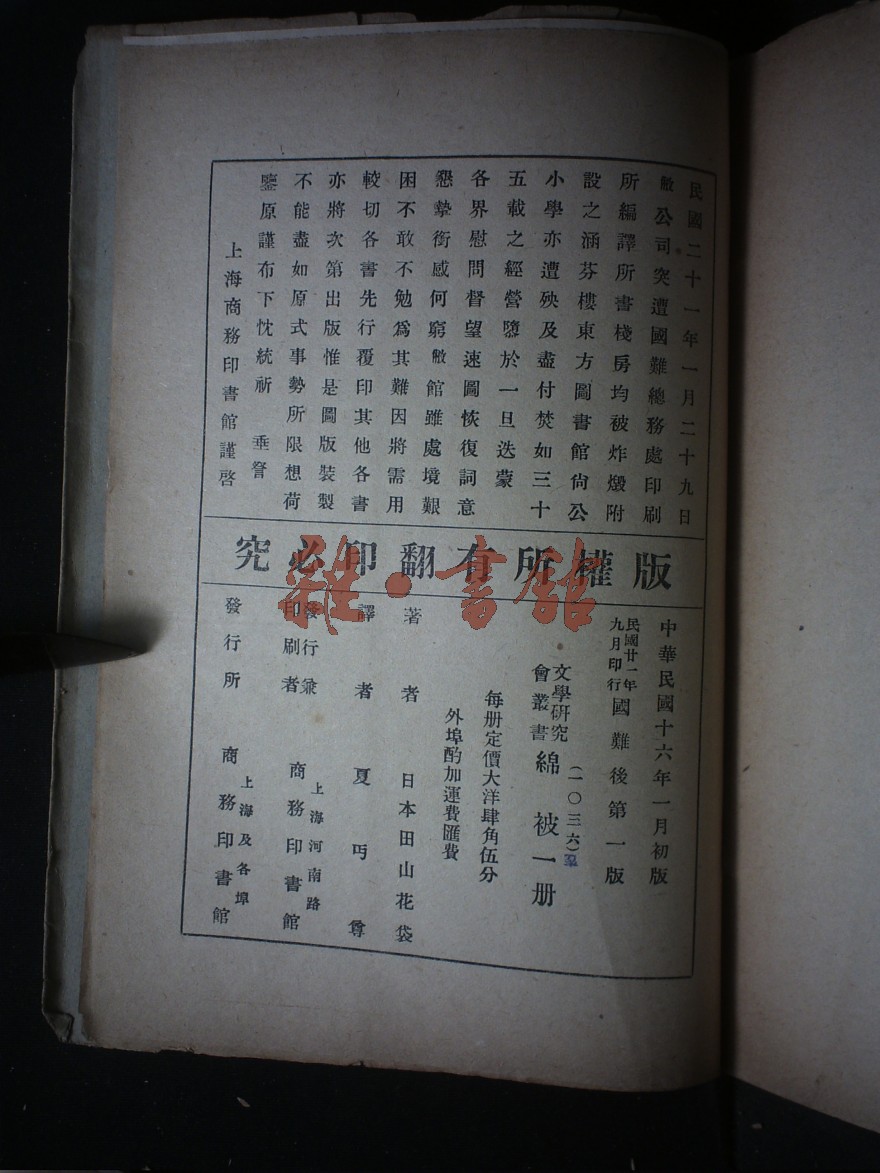 民國二十一年一月二十九日
敝公司突遭國難總務處印刷
所編譯所書棧房均被炸燬附
設之涵芬樓東方圖書館尙公
小學亦遭殃及盡付焚如三十
五載之經營隳於一旦迭蒙
各界慰問督望速圖恢復詞意
懇摯銜感何窮敝館雖處境艱
困不敢不勉爲其難因將需用
較切各書先行覆印其他各書
亦將次第出版惟是圖版裝製
不能盡如原式事勢所限想荷
鑒原謹布下忱統祈 垂詧
上海商務印書館謹啓
版權所有翻印必究
雜·書館
中華民國十六年一月初版
民國廿一年九月印行國難後第一版
(一〇三六)
文學研究會叢書 綿被一册
每册定價大洋肆角伍分
外埠酌加運費匯費
著者 日本田山花袋
譯者 夏丏尊
發行兼印刷者 上海河南路 商務印書館
發行所 上海及各埠 商務印書館